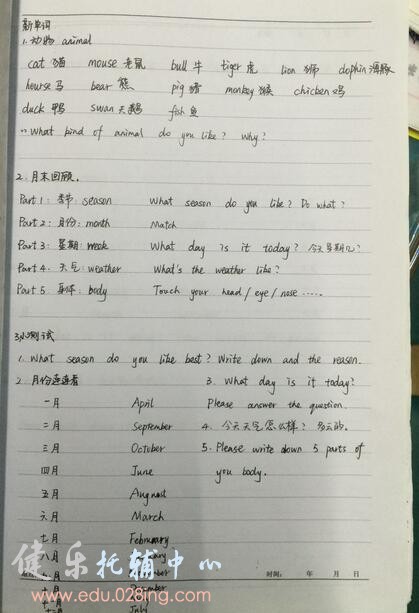 新单词
1. 动物 animal
cat 猫 mouse 老鼠 bull 牛 tiger 虎 lion 狮 dophin 海豚
hourse 马 bear 熊 pig 猪 monkey 猴 chicken 鸡
duck 鸭 swan 天鹅 fish 鱼
What kind of animal do you like? Why?
2. 月末回顾.
Part 1: 季节: season What season do you like? Do what?
Part 2: 月份: month Match
Part 3: 星期: week What day is it today? 今天星期几?
Part 4. 天气: weather What's the weather like?
Part 5 身体: body Touch your head / eye / nose ......
3.小测试
1. What season do you like best? Write down and the reason.
2. 月份连连看 3. What day is it today?
一月 April Please answer the question.
二月 September 4. 今天天气怎么样? 多云的.
三月 October 5. Please write down 5 parts of
四月 June you body.
五月 Augnast
六月 March
七月 February
八月
July
时间: 年 月 日
健乐托辅中心
www.edu.028ing.com